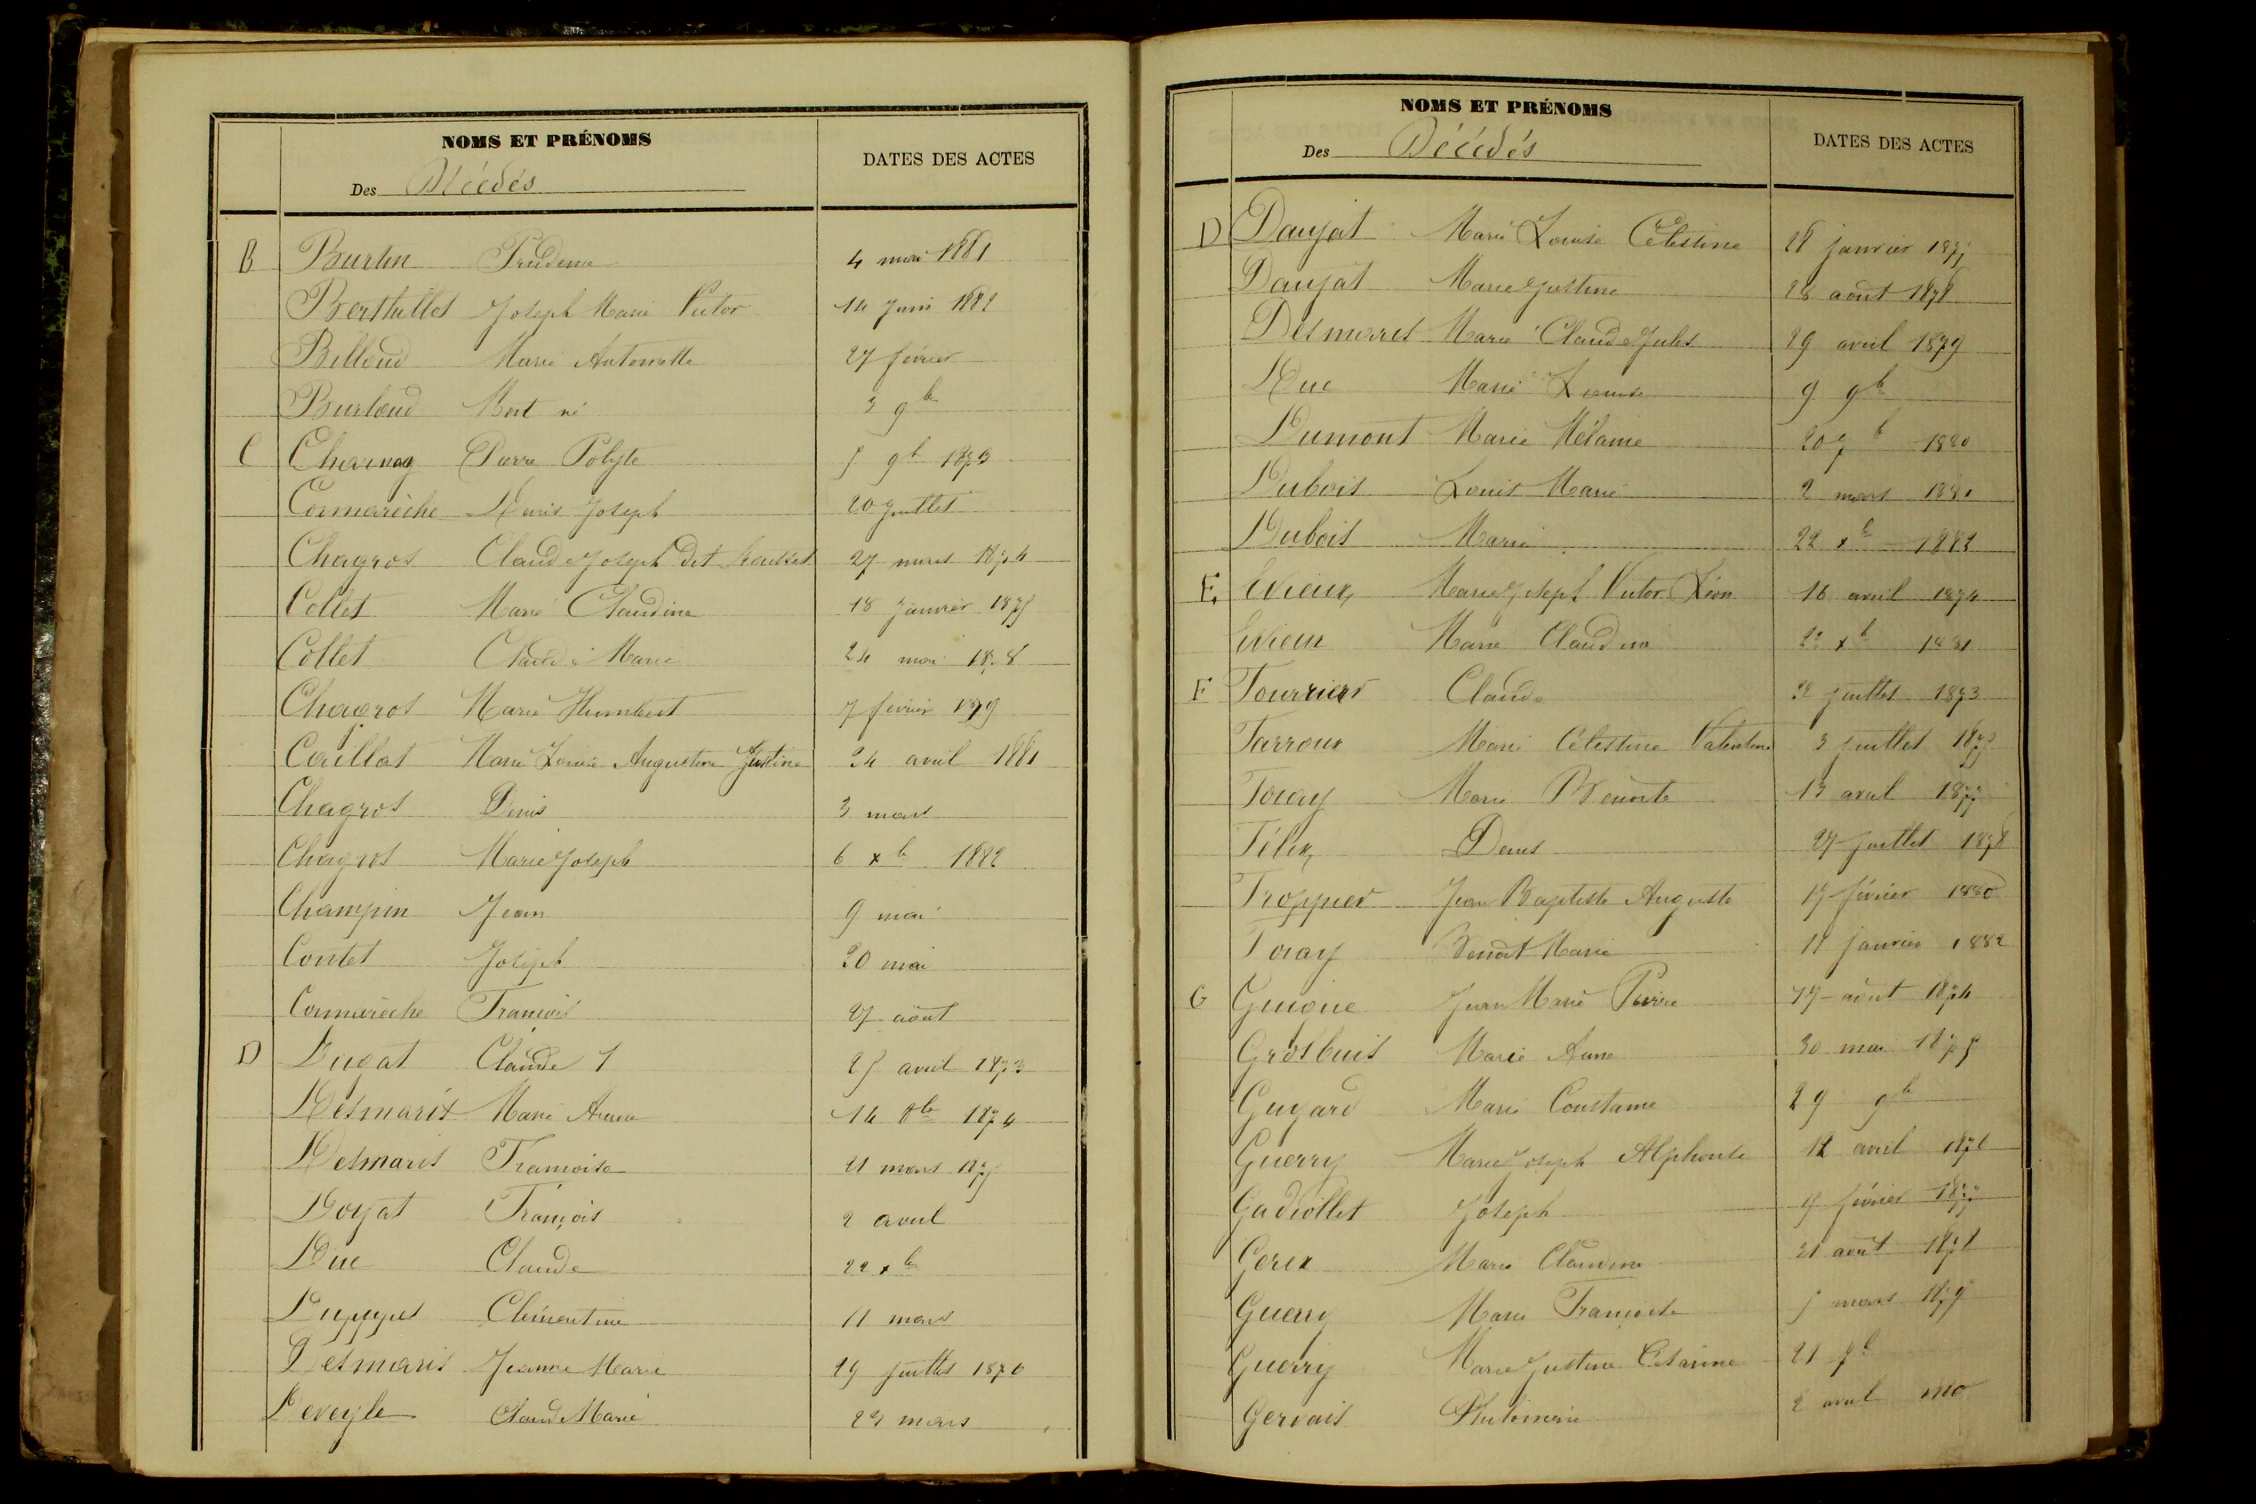 NOMS ET PRÉNOMS
Des Décédés
DATES DES ACTES
B Burtin Prudence 4 mai 1881
Berthillet Joseph Marie Victor 14 juin 1882
Billoud Marie Antoinette 27 février
Burloud Mort né 3 9b
C Charnay Pierre Polyte 5 9b 1873
Cormarèche Denis Joseph 20 juillet
Chagros Claude Joseph dit 27 mars 1874
Collet Marie Claudine 18 janvier 1875
Collet Claude Marie 24 mai 1878
Chagros Marie Humbert 7 février 1879
Caillat Marie Louise Augustine Justine 24 avril 1881
Chagros Denis 3 mars
Chagros Marie Joseph 6 xb 1882
Champin Jean 9 mai
Contet Joseph 20 mai
Cormarèche François 27 août
D Dugat Claude 25 avril 1873
Desmaris Marie 14 8b 1874
Desmaris Françoise 21 mars 1875
Doyat François 2 avril
Duc Claude 22 xb
Duppet Clémentine 11 mars
Desmaris Jeanne Marie 29 juillet 1876
Deveyle Claude Marie 23 mars
NOMS ET PRÉNOMS
Des Décédés
DATES DES ACTES
D Daujat Marie Louise Célestine 28 janvier 1877
Daujat Marie Justine 28 août 1878
Desmares Marie Claude Jules 29 avril 1879
Duc Marie Louise 9 9b
Dumont Marie Mélanie 20 7b 1880
Dubois Louis Marie 2 mars 1881
Dubois Marie 22 xb 1882
E. Evieux Marie Joseph Victor Léon 16 avril 1874
Evieux Marie Claudine xb 1881
F Fourrier Claude juillet 1873
Farroux Marie Célestine Valentine 3 juillet 1875
Foray Marie Benoite 13 avril 1877
Félix Denis 27 juillet 1878
Froppier Jean Baptiste Auguste 17 février 1880
Foray Benoit Marie 11 janvier 1882
G Guigue Jean Marie Pierre août 1874
Grosbuis Marie Anne 30 mai 1875
Guyard Marie Constance 29 9b
Guerry Marie Joseph Alphonse 12 avril 1876
Gadiollet Joseph février 1877
Gerex Marie Claudine 21 août 1878
Guerry Marie Françoise 5 mars 1879
Guerry Marie Justine Césarine 21 7b
Gervais Philomène 2 avril 1880